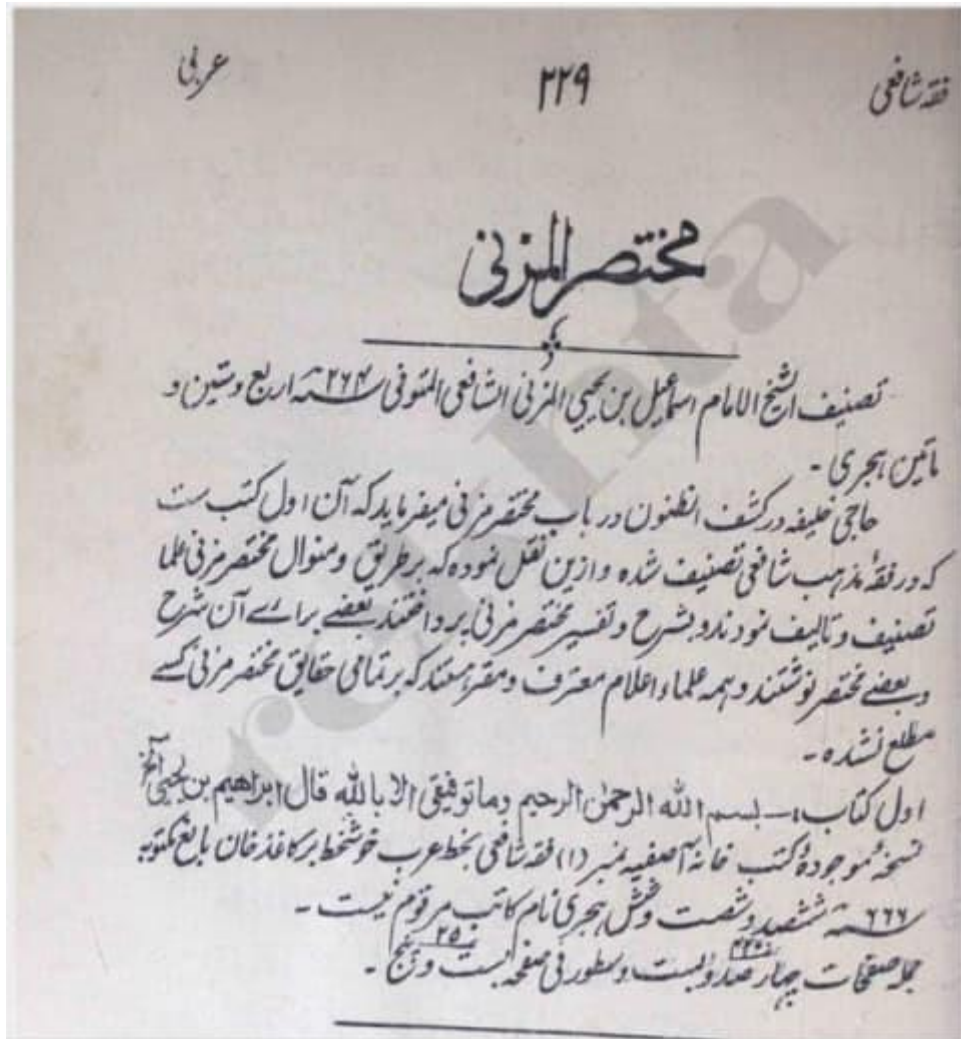 فقه شافعی ۲۲۹ عربی
مختصر المزنی
تصنیف الشیخ الامام اسماعیل بن یحیی المزنی الشافعی المتوفی سنه ۲۶۴ اربع وستین و
ماتین ہجری -
حاجی خلیفه در کشف الظنون در باب مختصر مزنی میفرماید که آن اول کتب ست
که در فقهٔ مذہب شافعی تصنیف شده و ازین نقل نموده که بر طریق و منوال مختصر مزنی علما
تصنیف و تالیف نمودند و بشرح و تفسیر مختصر مزنی پرداختند بعضے براے آن شرح
و بعضے مختصر نوشتند و ہمه علماء اعلام معترف و مقر ہستند که بر تمامی حقایق مختصر مزنی کسے
مطلع نشده -
اول کتاب :— بسم الله الرحمٰن الرحیم وماتوفیقی الا بالله قال ابراهیم بن یحیی الخ
نسخهٔ موجودهٔ کتب خانهٔ آصفیه نمبر (۱) فقه شافعی بخط عرب خوشخط بر کاغذ خان بالغ مکتوبه
سنه ۶۶۶ ششصد و شصت و شش ہجری نام کاتب مرقوم نیست -
جمله صفحات چہار صد و بست ۴۲۰ و سطور فی صفحه بست و پنج ۲۵ -
rekhta